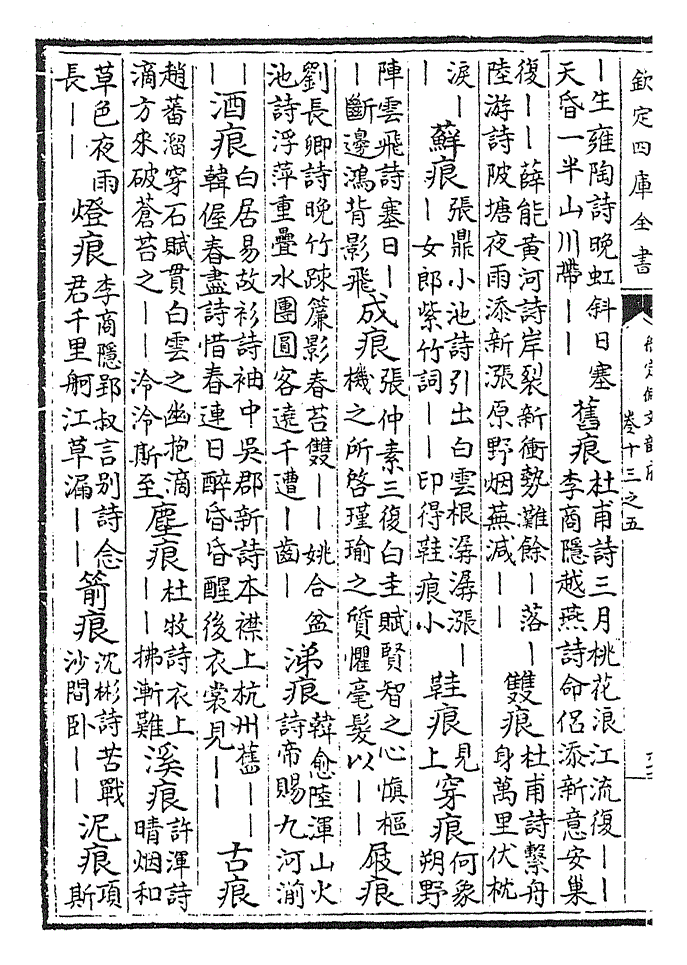 欽定四庫全書
御定佩文韻府
卷十三之五
—生雍陶詩晚虹斜日塞天昏一半山川帶——舊痕杜甫詩三月桃花浪江流復——李商隱越燕詩命侶添新意安巢
復——薛能黄河詩岸裂新衝勢灘餘—落—陸游詩陂塘夜雨添新漲原野烟蕪減——雙痕杜甫詩繫舟身萬里伏枕
淚——蘚痕張鼎小池詩引出白雲根潺潺漲——女郎紫竹詞——印得鞋痕小鞋痕見上穿痕何象朔野
陣雲飛詩塞日——斷邊鴻背影飛成痕張仲素三復白圭賦賢智之心慎樞機之所啓瑾瑜之質懼毫髮以——屐痕
劉長卿詩晚竹疎簾影春苔雙——姚合盆池詩浮萍重疊水團圓客遶千遭—齒—涕痕韓愈陸渾山火詩帝賜九河湔
——酒痕白居易故衫詩袖中吳郡新詩本襟上杭州舊——韓偓春盡詩惜春連日醉昏昏醒後衣裳見——古痕
趙蕃溜穿石賦貫白雲之幽抱滴滴方來破蒼苔之——泠泠斯至塵痕杜牧詩衣上——拂漸難溪痕許渾詩晴烟和
草色夜雨長——燈痕李商隱郢叔言别詩念君千里舸江草漏——箭痕沈彬詩苦戰沙間卧——泥痕項斯